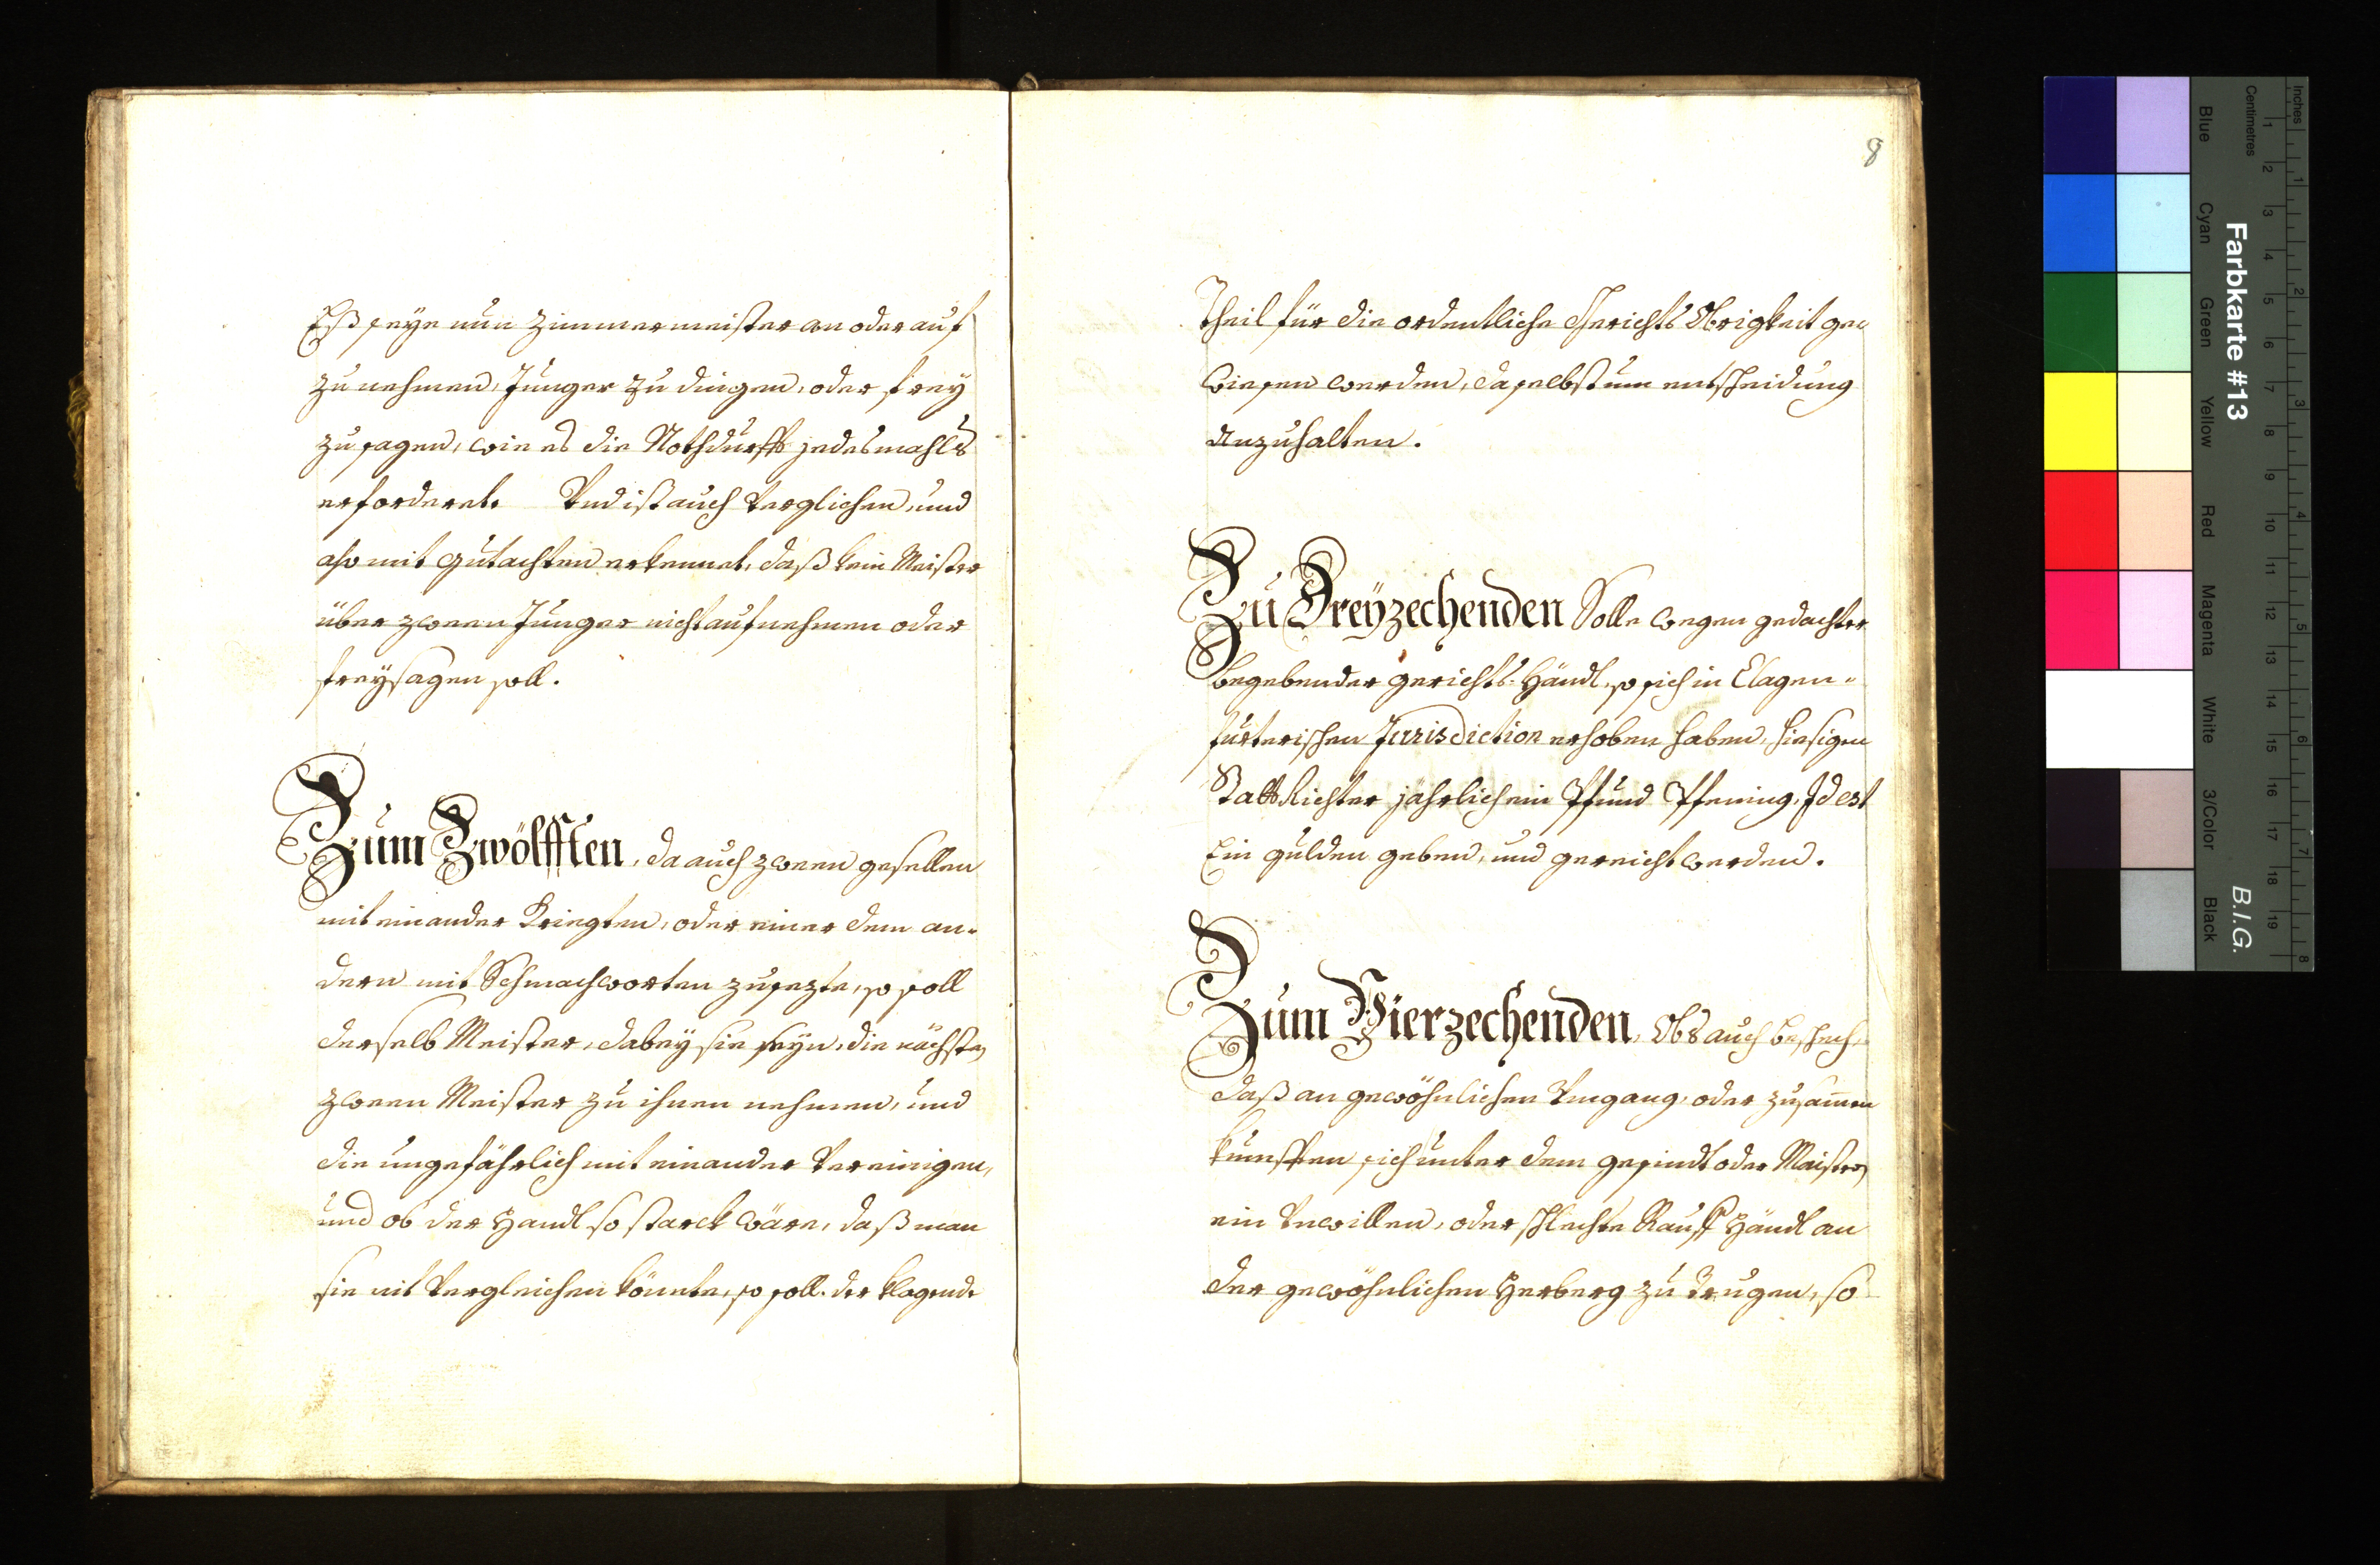 Eß seye nun Zimmermeister an oder auf
zu nehmen, Junger zu dingen, oder frey
zu sagen, wie es die Nothdurfft jedesmahls
erforderet. Vnd ist auch verglichen, und
also mit gutachten erkennet, daß kein Meister
über zween Junger nicht aufnehmen oder
freysagen soll.
Zum Zwölfften, da auch zween gesellen
mit einander Kriegten, oder einer dem an-
dern mit Schmachworten zusezte, so soll
derselb Meister, dabey sie seyn, die nächsten
zween Meister zu ihnen nehmen, und
die ungefährlich mit einander vereinigen,
und ob der Handl so starck wäre, daß man
sie nit vergleichen könnte, so soll der klagende
8
Theil für die ordentliche Gerichts Obrigkeit ge-
wiesen werden, daselbst um entscheidung
anzuhalten.
Zu Dreyzechenden Solle wegen gedachter
begebender gerichts-Händl, so sich in Clagen-
furterischen Jurisdiction erhoben haben, hiesigen
StattRichter jährlich ein Pfund Pfening, Id est
Ein gulden geben, und gereicht werden.
Zum Vierzechenden, Obs auch beschech,
daß an gewöhnlichen Umgang, oder zusamen
kunfften sich unter dem gesindt oder Maistern
ein Unwillen, oder schlechte Rauff Händl an
der gewöhnlichen Herberg zu trugen, so
Inches
Centimetres
Farbkarte #13
B.I.G.
Blue
Cyan
Green
Yellow
Red
Magenta
White
3/Color
Black
1 2 3 4 5 6 7 8 9 10 11 12 13 14 15 16 17 18 19
1 2 3 4 5 6 7 8